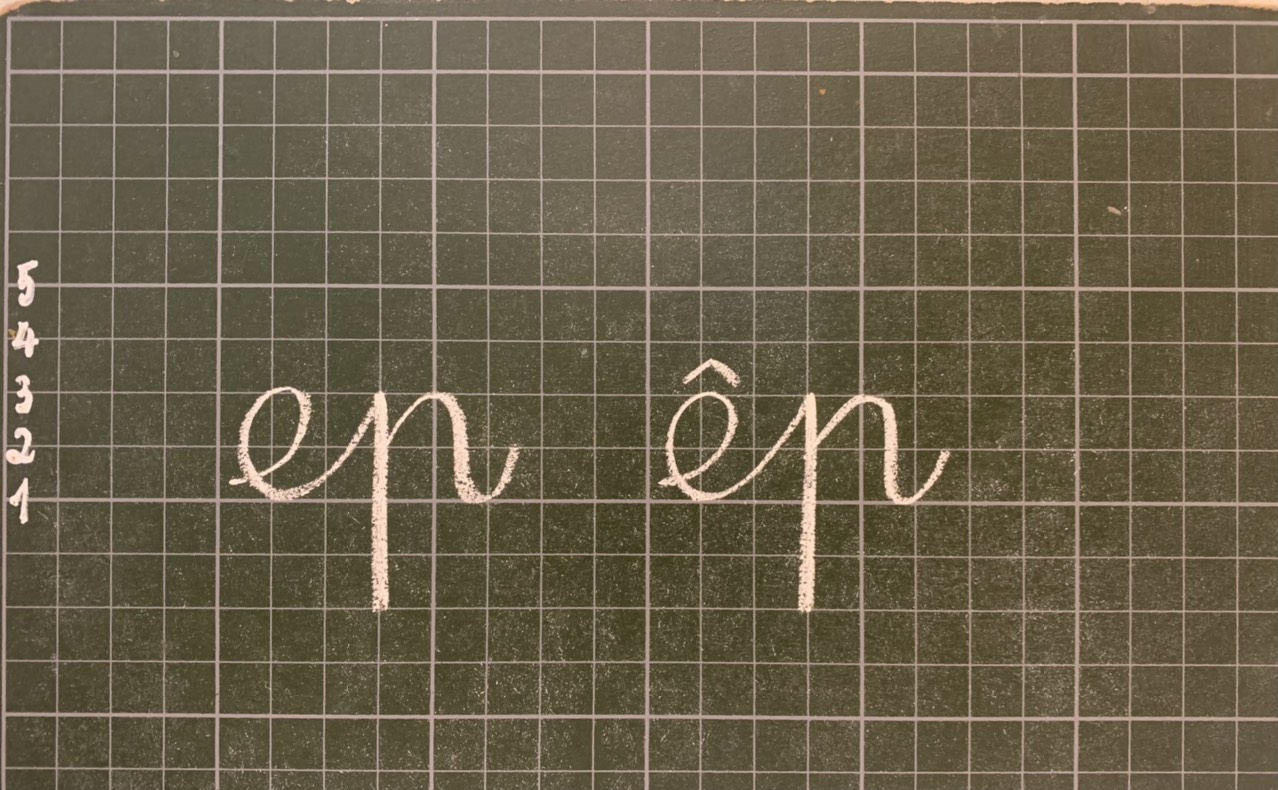 5
4
3
2
1
ep êp